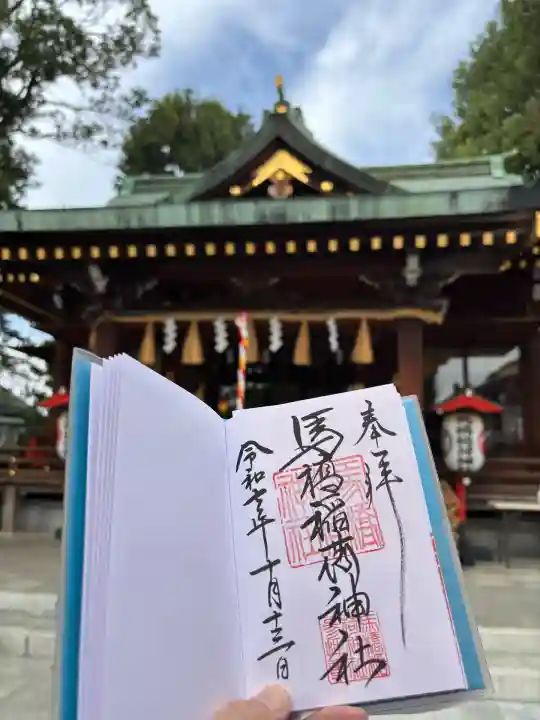 奉拝
馬橋稲荷神社
令和七年十月十三日